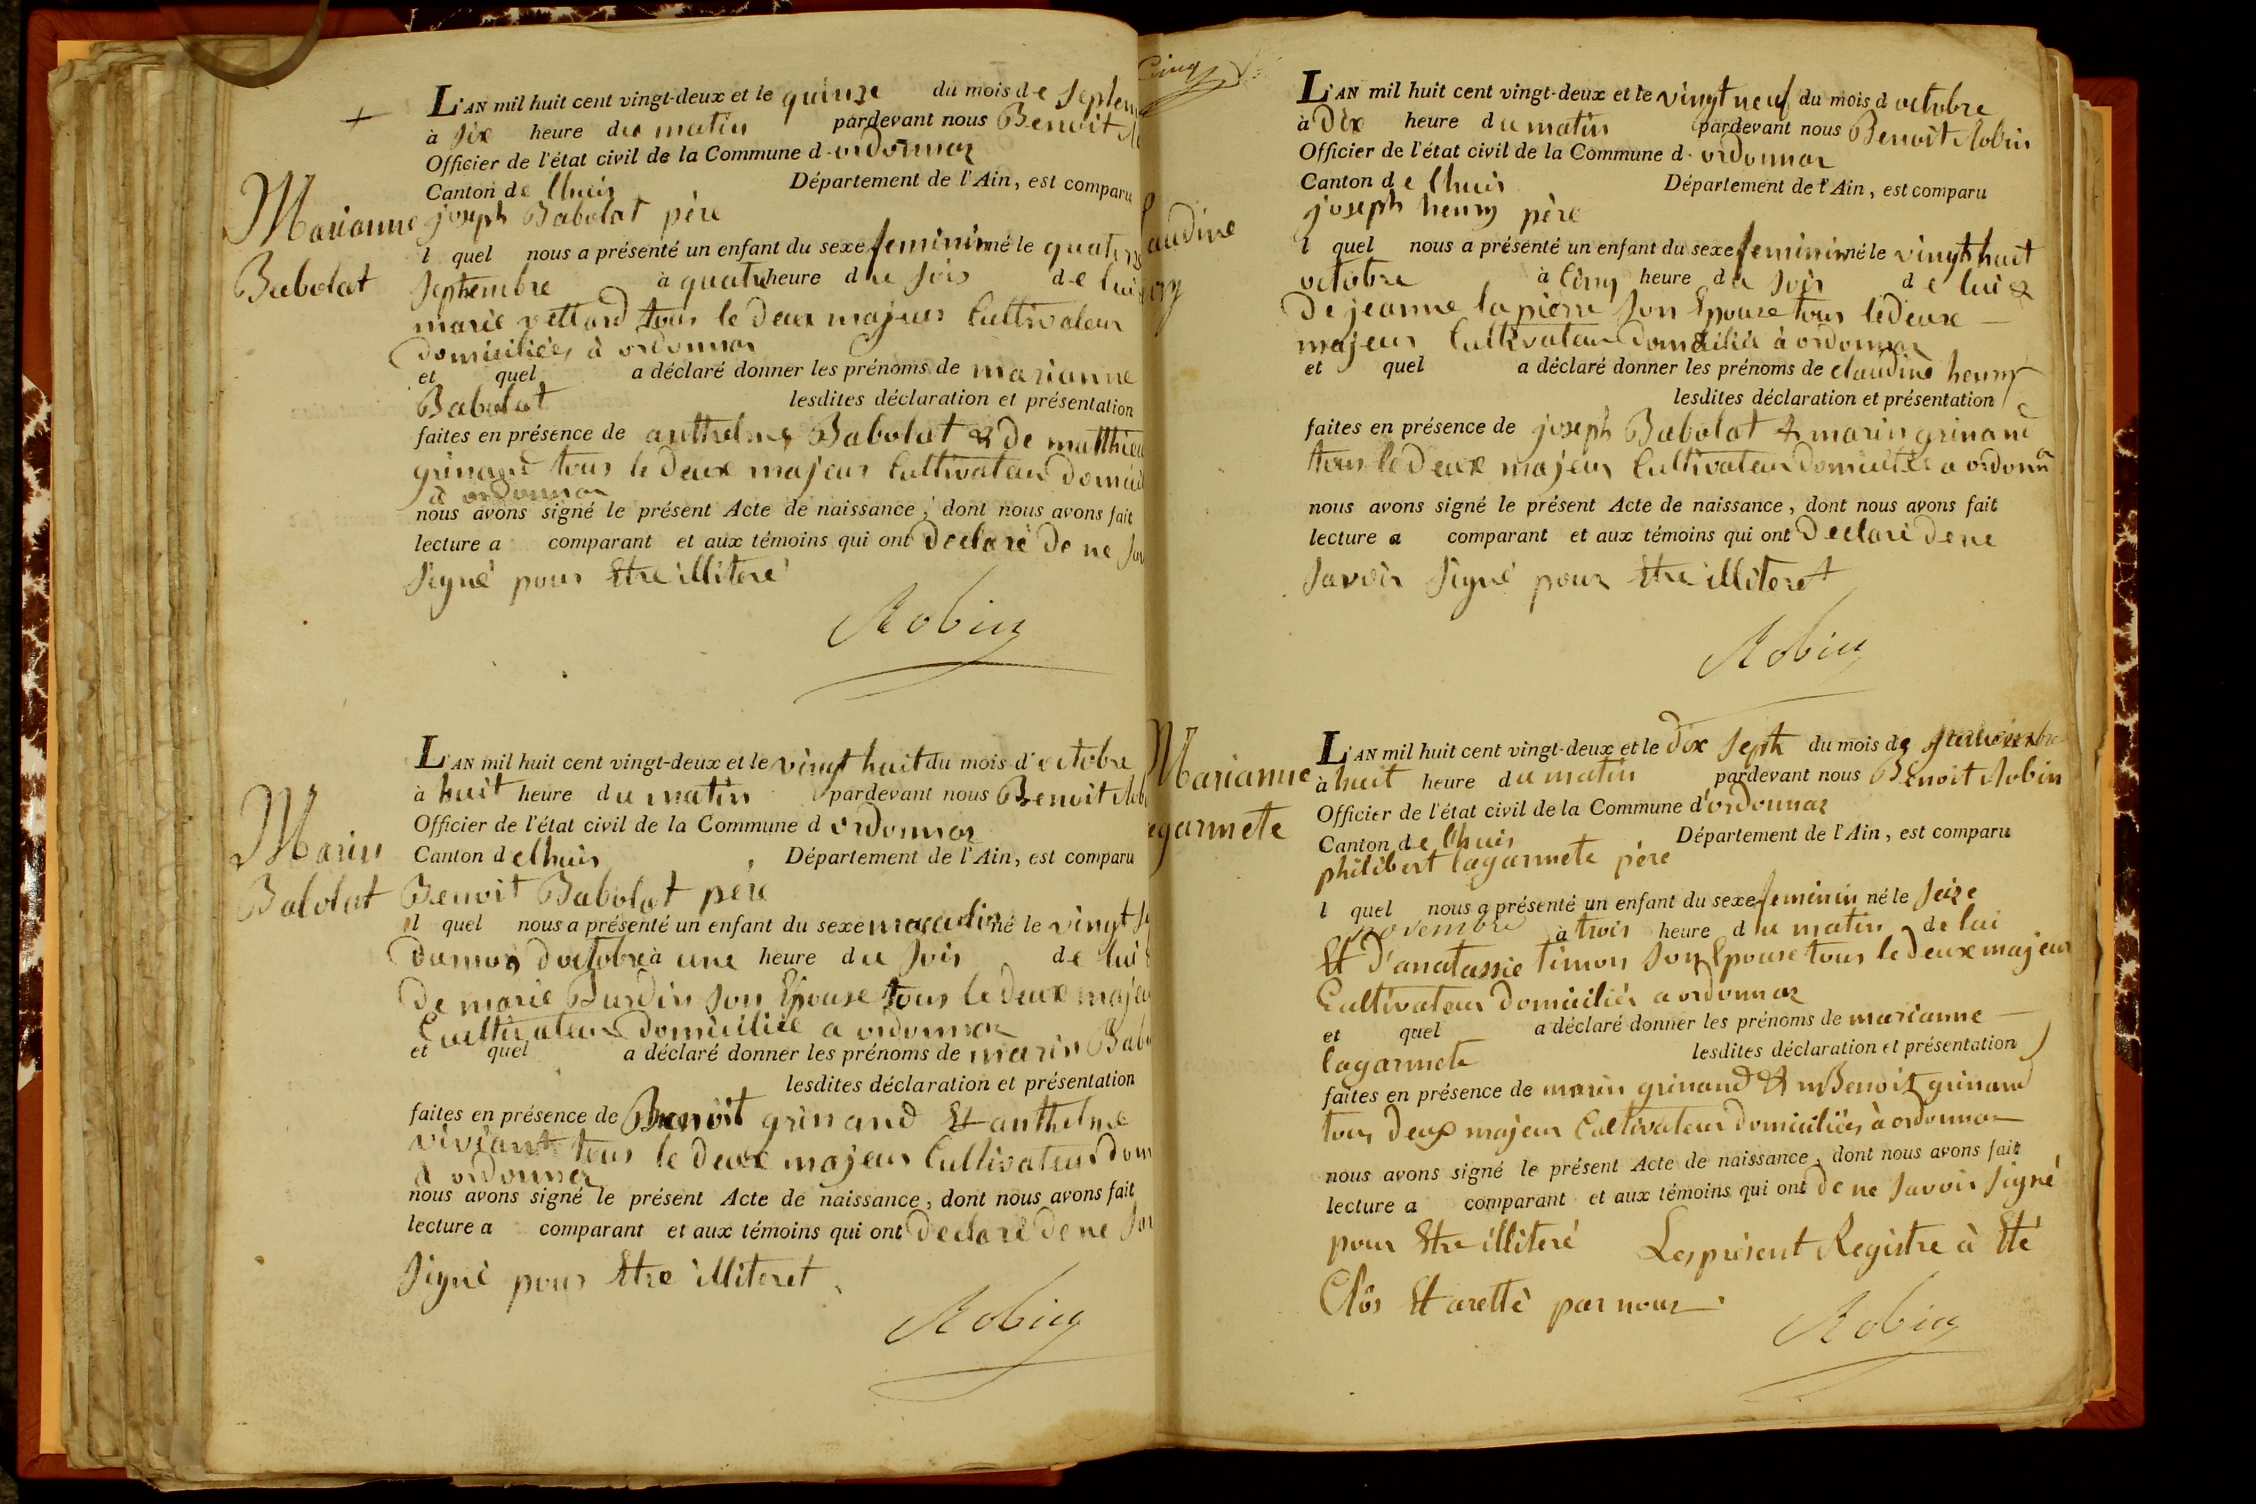 L'AN mil huit cent vingt-deux et le quinze du mois de Septem
à Six heure du matin pardevant nous Benoit
Officier de l'état civil de la Commune d. ordonnaz
Canton de lhuis Département de l'Ain, est comparu
Marianne
Babolat
joseph Babolat père
l quel nous a présenté un enfant du sexe feminin né le quatorz
Septembre à quatre heure du Soir de lui
marie vettard tous le deux majeur Cultivateur
domiciliés à ordonnaz
et quel a déclaré donner les prénoms de marianne
Babolat lesdites déclaration et présentation
faites en présence de anthelme Babolat & de matthieu
grinand tous le deux majeur Cultivateur domicil
à ordonnaz
nous avons signé le présent Acte de naissance, dont nous avons fait
lecture a comparant et aux témoins qui ont declaré de ne
Signé pour Etre illiteré
Robin
L'AN mil huit cent vingt-deux et le vingt huit du mois d'octobre
à huit heure du matin pardevant nous Benoit Rob
Officier de l'état civil de la Commune d ordonnaz
Canton de lhuis, Département de l'Ain, est comparu
Marin
Babolat
Benoit Babolat père
il quel nous a présenté un enfant du sexe masculin né le vingt
du mois doctobre à une heure du Soir de lui
de marie Burdin Son Epouse tous le deux majeu
Cultivateur domicilié a ordonnaz
et quel a déclaré donner les prénoms de marin Bab
lesdites déclaration et présentation
faites en présence de Benoit grinand Et anthelme
viviant tous le deux majeur Cultivateur dom
à ordonnaz
nous avons signé le présent Acte de naissance, dont nous avons fait
lecture a comparant et aux témoins qui ont declaré de ne
Signé pour Etre illiteret
Robin
Cinq
L'AN mil huit cent vingt-deux et le vingt neuf du mois d octobre
à Dix heure du matin pardevant nous Benoit Robin
Officier de l'état civil de la Commune d. ordonnaz
Canton de lhuis Département de l'Ain, est comparu
audine
ry
joseph henry père
l quel nous a présenté un enfant du sexe feminin né le vingt huit
octobre à Cinq heure du Soir de lui &
de jeanne lapierre Son Epouse tous le deux
majeur Cultivateur domicilié à ordonnaz
et quel a déclaré donner les prénoms de claudine henry
lesdites déclaration et présentation
faites en présence de joseph Babolat & marin grinand
tous le deux majeur Cultivateur domicilié a ordonn
nous avons signé le présent Acte de naissance, dont nous avons fait
lecture a comparant et aux témoins qui ont declaré de ne
Savoir Signé pour Etre illiteret
Robin
L'AN mil huit cent vingt-deux et le dix Sept du mois de
à huit heure du matin pardevant nous Benoit Robin
Officier de l'état civil de la Commune d'ordonnaz
Canton de lhuis Département de l'Ain, est comparu
Marianne
agarmete
philibert lagarmete père
l quel nous a présenté un enfant du sexe feminin né le Seize
novembre à trois heure du matin de lui
Et D'anatassie timon Son Epouse tous le deux majeur
Cultivateur domiciliés a ordonnaz
et quel a déclaré donner les prénoms de marianne
lagarmete lesdites déclaration et présentation
faites en présence de marin grinand & Benoit grinand
tous deux majeur Cultivateur domiciliés à ordonnaz
nous avons signé le présent Acte de naissance, dont nous avons fait
lecture a comparant et aux témoins qui ont de ne Savoir Signé
pour Etre illiteré Les present Registre à Eté
Clôs Et aretté par nous
Robin